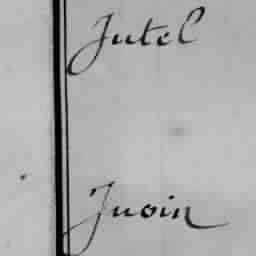 Jutel
Juoin